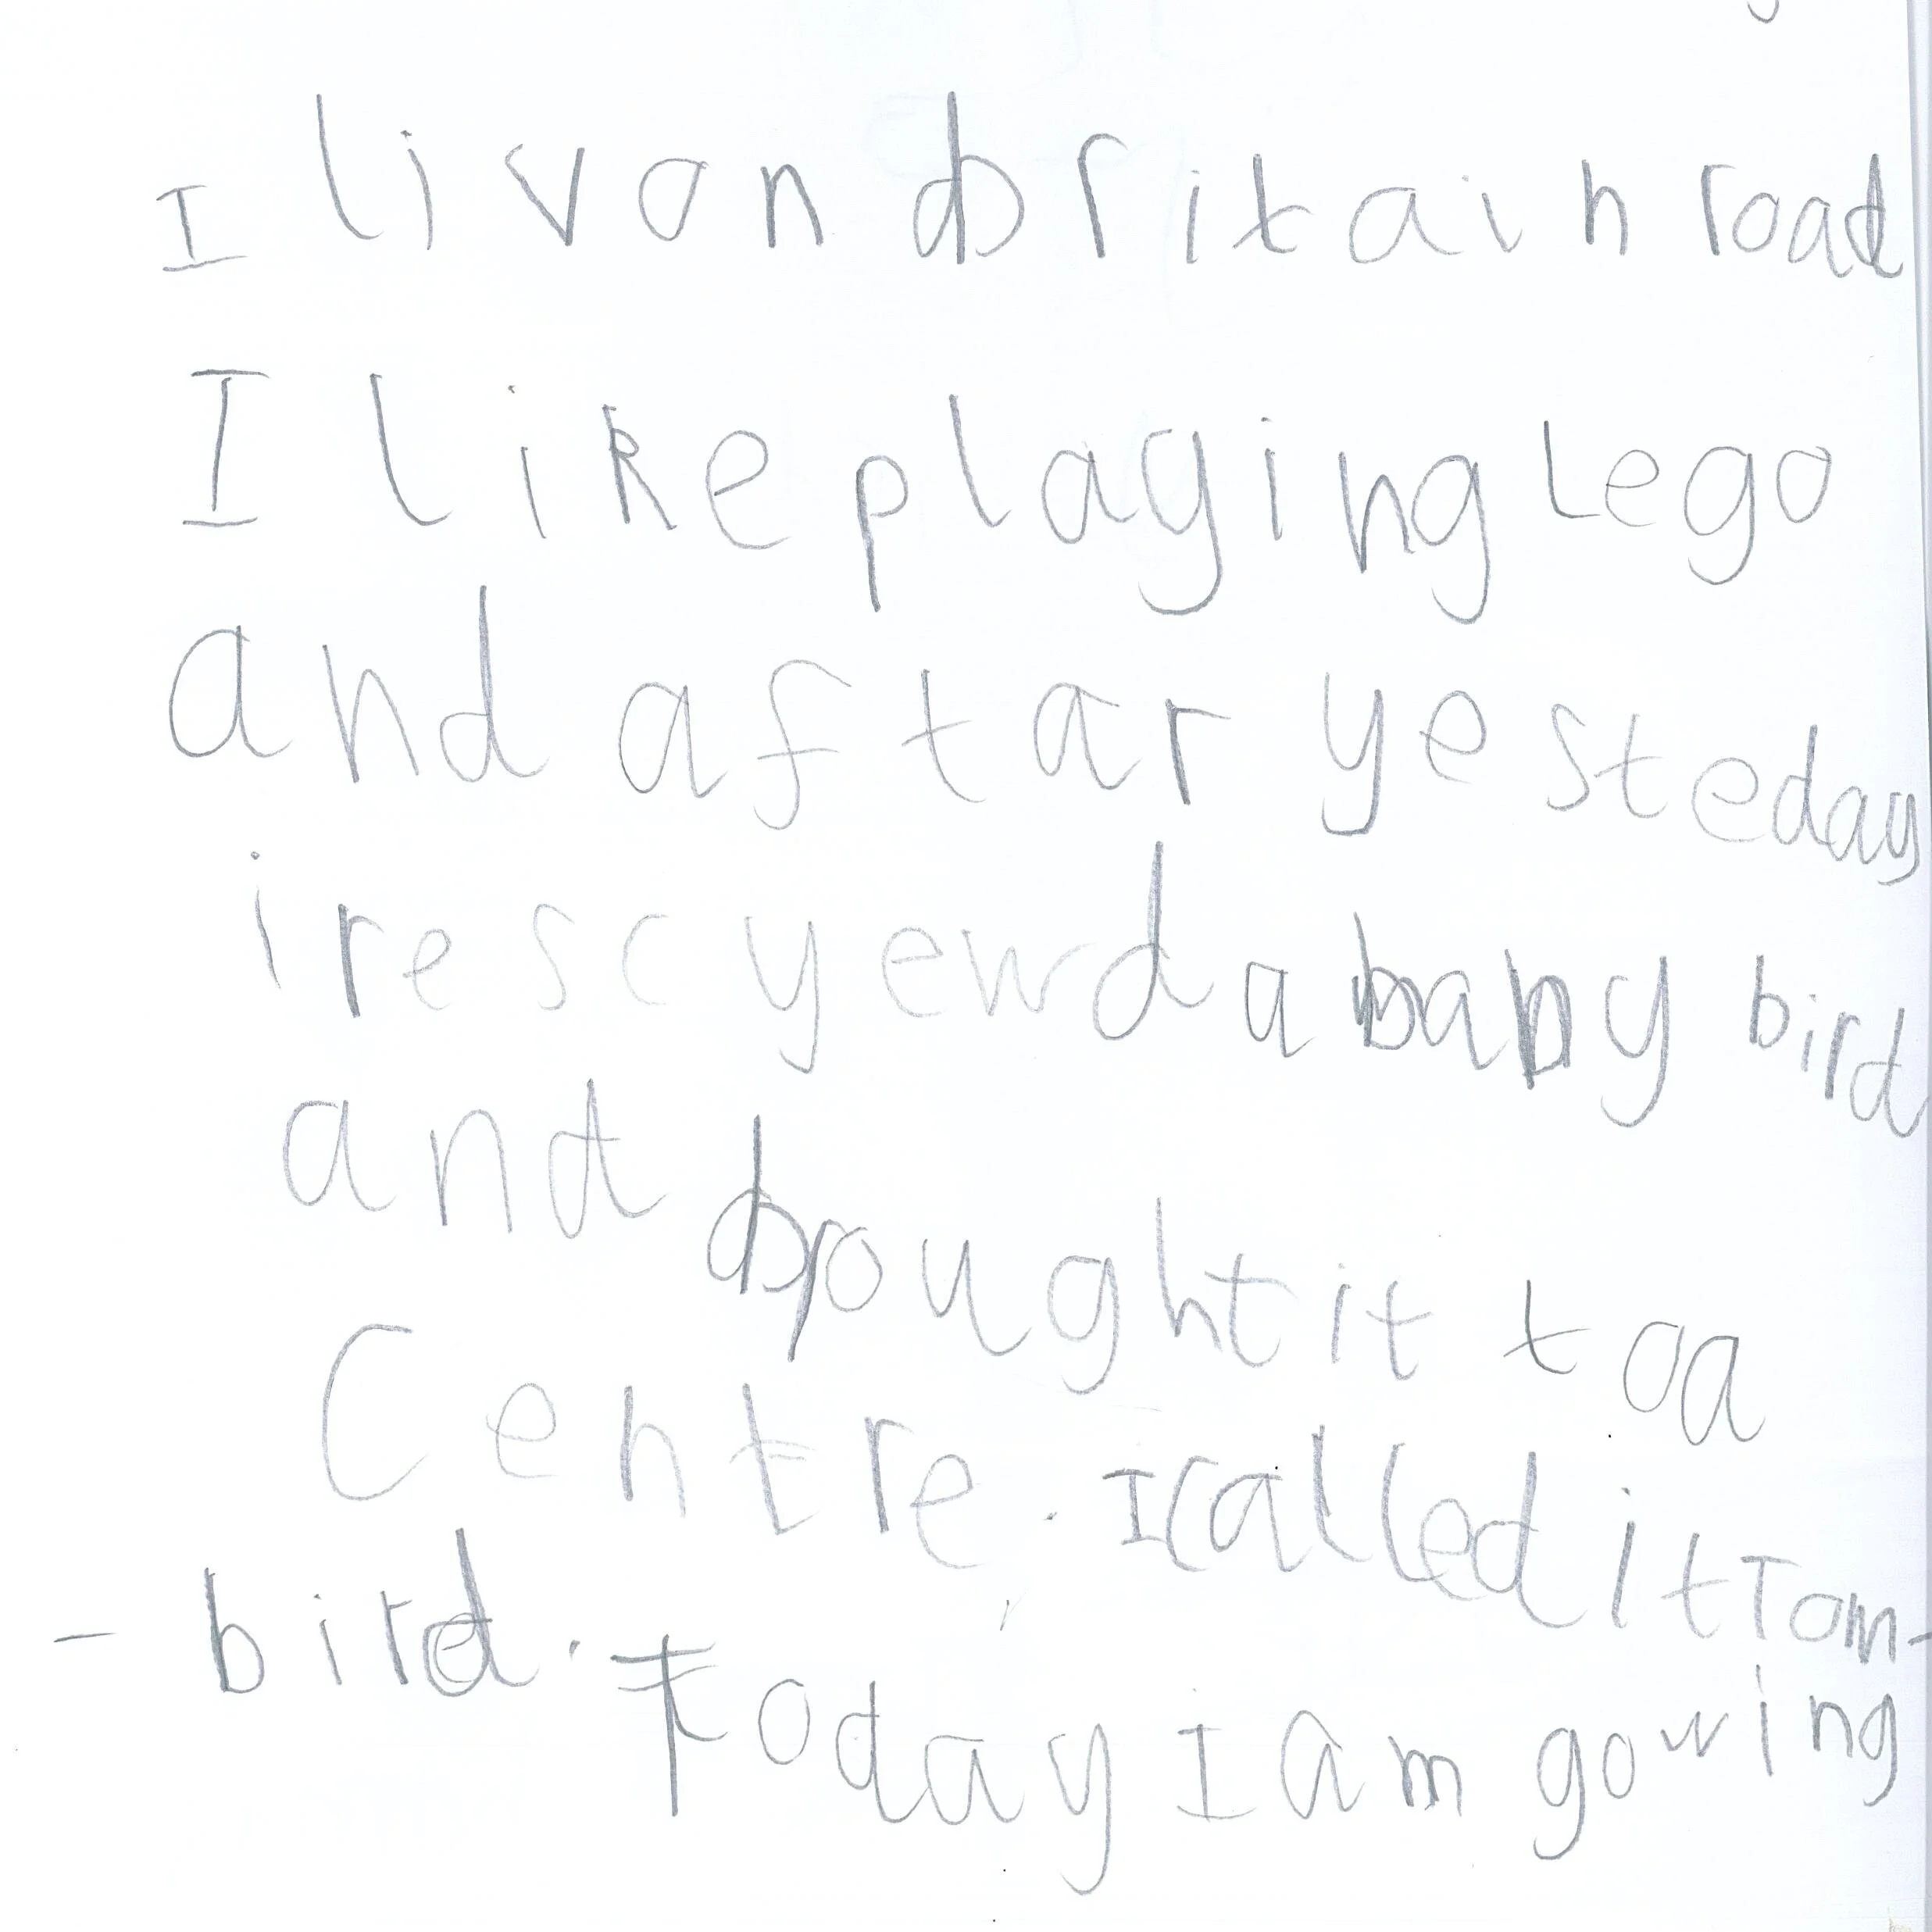 I liv on britain road
I like playing Lego
and aftar yesteday
i rescyewd a baby bird
and brought it to a
Centre. I called it Tom-
- bird. Today I am gowing